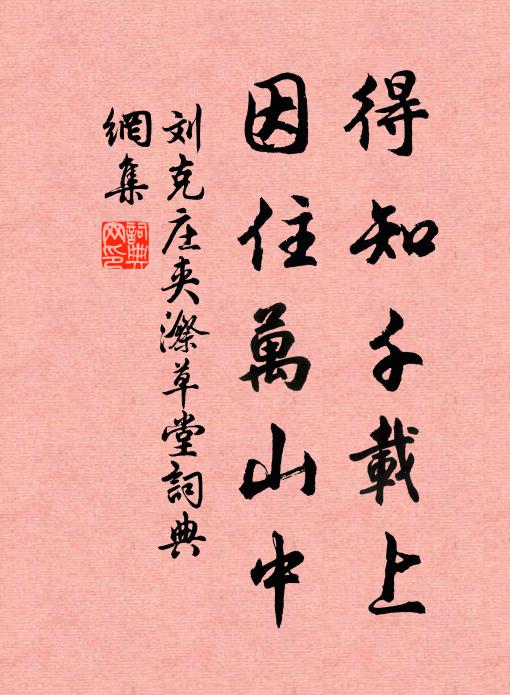 得知千載上
因住萬山中
刘克庄夹漈草堂詞典
網集
詞典
网印